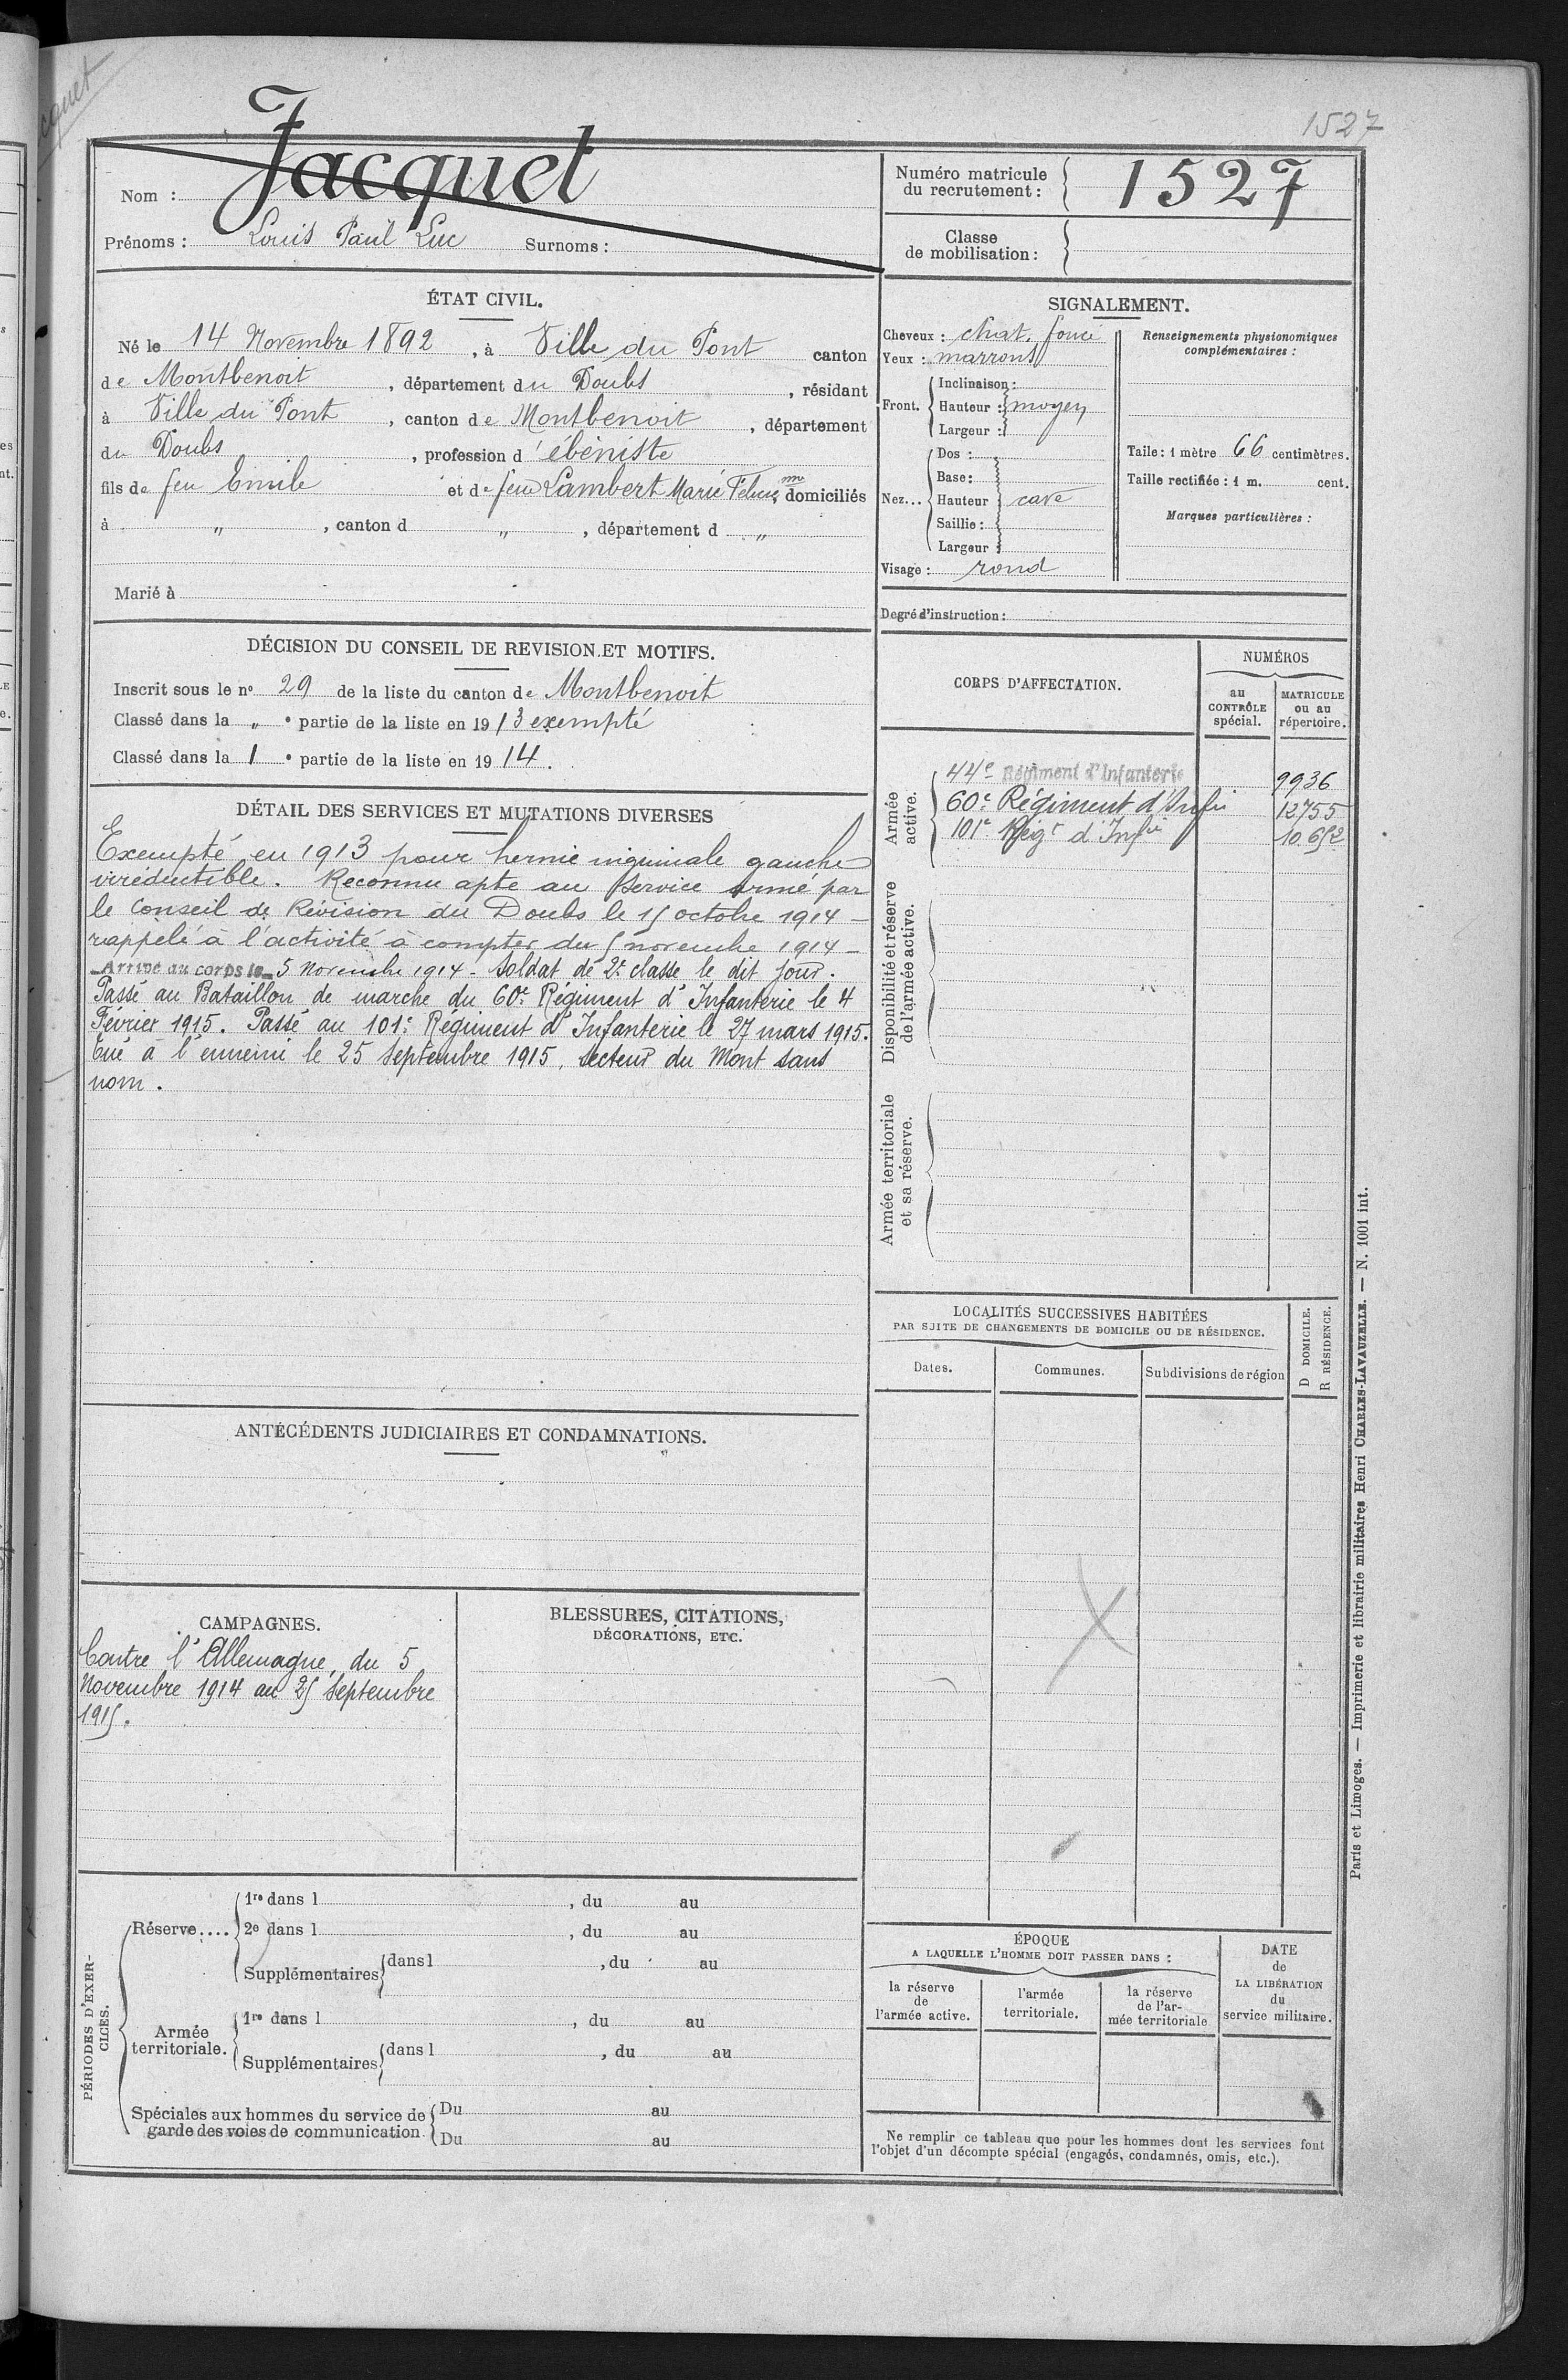 1527
Jacquet
Nom :
Numéro matricule
du recrutement :
1527
Prénoms : Louis Paul Luc Surnoms :
Classe
de mobilisation :
ÉTAT CIVIL.
Né le 14 Novembre 1892, à Ville du Pont canton
de Montbenoit, département du Doubs, résidant
à Ville du Pont, canton de Montbenoit, département
du Doubs, profession d'ébéniste
fils de feu Emile et de feue Lambert Marie domiciliés
à " , canton d " , département d "
Marié à
SIGNALEMENT.
Cheveux : chat. foncé
Yeux : marrons
Front.
Inclinaison :
Hauteur : moyen
Largeur :
Nez...
Dos :
Base :
Hauteur cave
Saillie :
Largeur :
Visage : rond
Renseignements physionomiques
complémentaires :
Taile : 1 mètre 66 centimètres.
Taille rectifiée : 1 m. cent.
Marques particulières :
Degré d'instruction :
DÉCISION DU CONSEIL DE REVISION ET MOTIFS.
Inscrit sous le nº 29 de la liste du canton de Montbenoit
Classé dans la " e partie de la liste en 1913 exempté
Classé dans la 1 e partie de la liste en 1914.
DÉTAIL DES SERVICES ET MUTATIONS DIVERSES
Exempté en 1913 pour hernie inguinale gauche
irréductible. Reconnu apte au Service armé par
le Conseil de Révision du Doubs le 15 octobre 1914 -
rappelé à l'activité à compter du 5 novembre 1914 -
Arrivé au corps le 5 Novembre 1914 - Soldat de 2e classe le dit jour.
Passé au Bataillon de marche du 60e Régiment d'Infanterie le 4
Février 1915. Passé au 101e Régiment d'Infanterie le 27 mars 1915.
Tué à l'ennemi le 25 Septembre 1915, secteur du Mont sans
nom.
CORPS D'AFFECTATION.
NUMÉROS
au
CONTRÔLE
spécial.
MATRICULE
ou au
répertoire.
Armée
active.
44e Régiment d'Infanterie 9936
60e Régiment d'Infie 12755
101e Régt d'Infie 10.652
Disponibilité et réserve
de l'armée active.
Armée territoriale
et sa réserve.
LOCALITÉS SUCCESSIVES HABITÉES
PAR SUITE DE CHANGEMENTS DE DOMICILE OU DE RÉSIDENCE.
D DOMICILE.
R RÉSIDENCE.
Dates.
Communes.
Subdivisions de région
ANTÉCÉDENTS JUDICIAIRES ET CONDAMNATIONS.
CAMPAGNES.
Contre l'Allemagne, du 5
Novembre 1914 au 25 Septembre
1915.
BLESSURES, CITATIONS,
DÉCORATIONS, ETC.
PÉRIODES D'EXER-
CICES.
Réserve....
1re dans l , du au
2e dans l , du au
Supplémentaires dans l , du au
Armée
territoriale.
1re dans l , du au
Supplémentaires dans l , du au
Spéciales aux hommes du service de
garde des voies de communication.
Du au
Du au
ÉPOQUE
A LAQUELLE L'HOMME DOIT PASSER DANS :
la réserve
de
l'armée active.
l'armée
territoriale.
la réserve
de l'ar-
mée territoriale
DATE
de
LA LIBÉRATION
du
service militaire.
Ne remplir ce tableau que pour les hommes dont les services font
l'objet d'un décompte spécial (engagés, condamnés, omis, etc.).
Paris et Limoges. — Imprimerie et librairie militaires Henri CHARLES-LAVAUZELLE. — N. 1001 int.